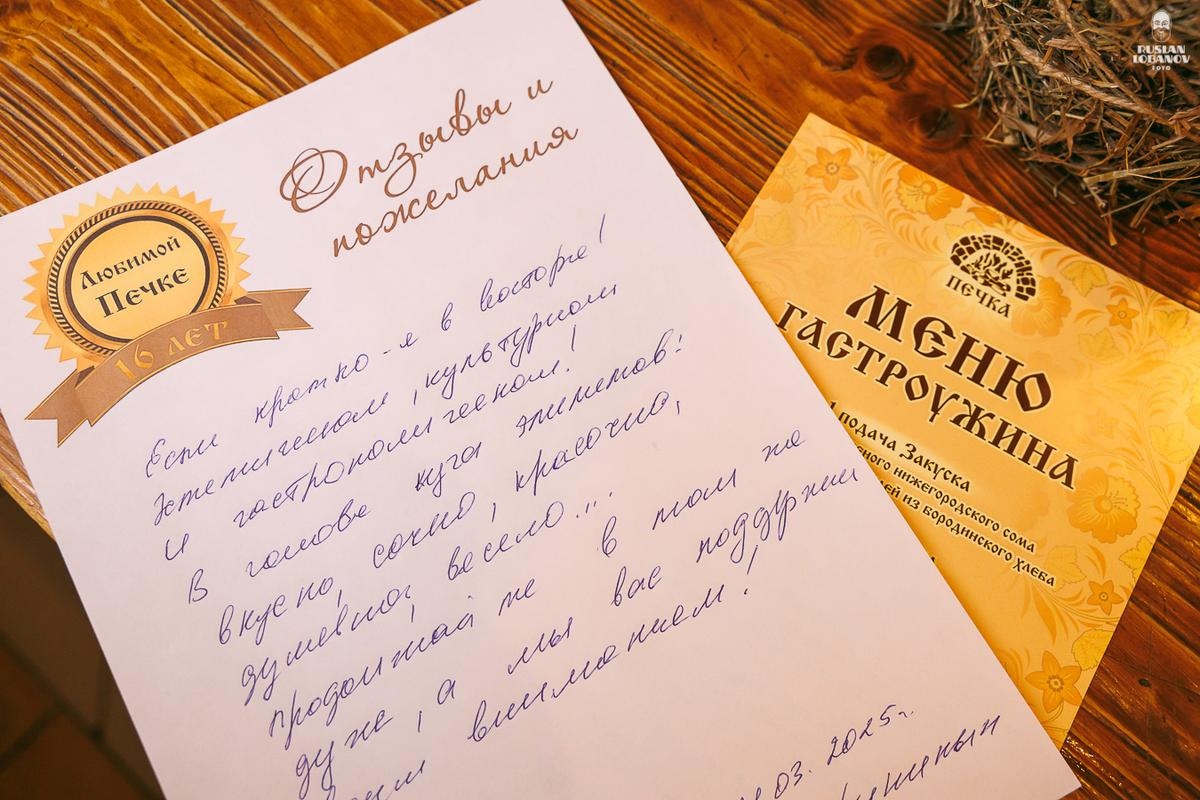 RUSLAN
LOBANOV
FOTO
Отзывы и
пожелания
Любимой
Печке
16 лет
Если кратко - я в восторге!
Эстетическом, культурном
и гастрономическом!
В голове куча эпитетов:
вкусно, сочно, красочно,
душевно, весело...
продолжайте в том же
духе, а мы вас поддержим
вниманием!
03. 2025г.
ПЕЧКА
МЕНЮ
ГАСТРОУЖИНА
подача Закуска
нижегородского сома
из бородинского хлеба